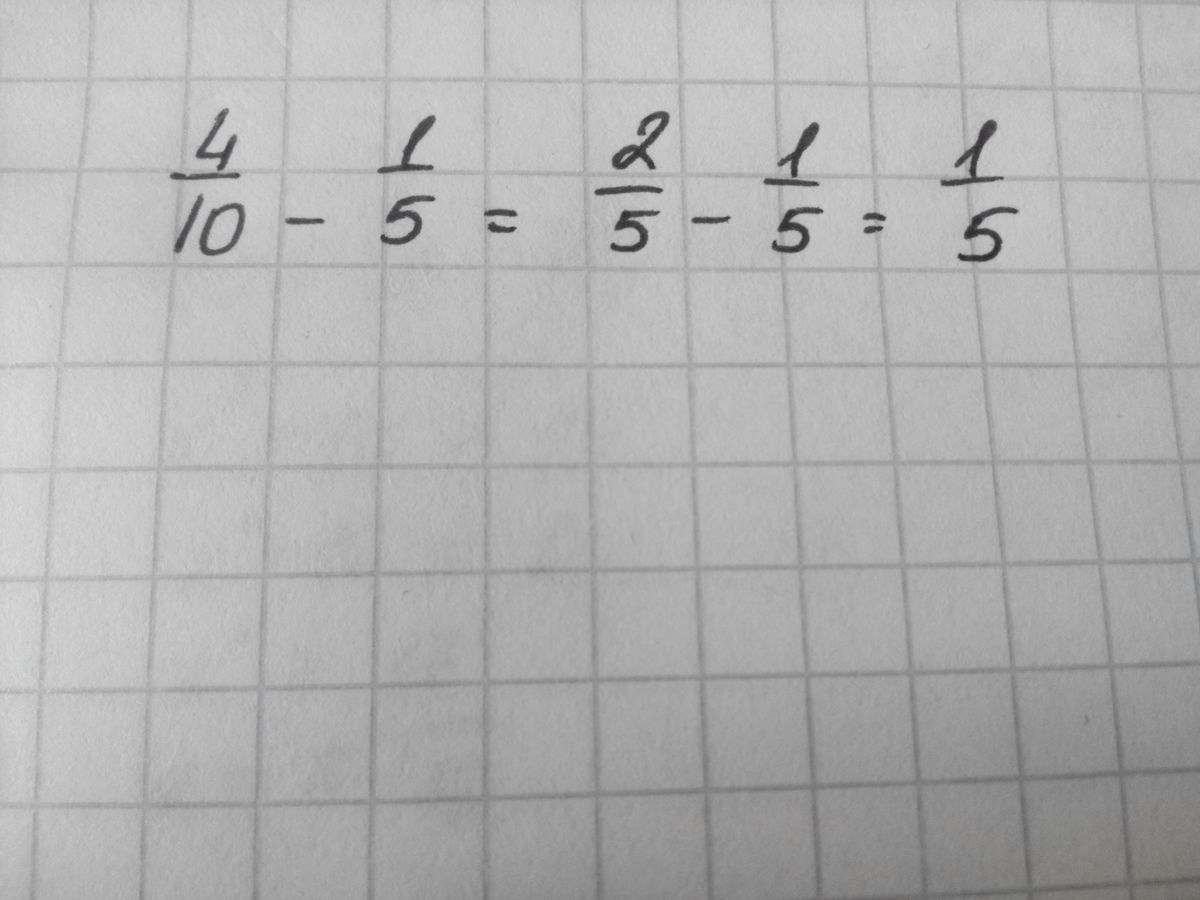 4/10 - 1/5 = 2/5 - 1/5 = 1/5